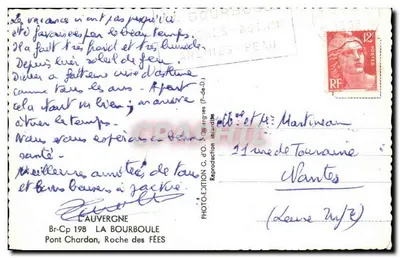 Les vacances n'ont pas jusqu'ici
été favorisées par le beau temps.
Il a fait très froid et très humide
Depuis hier soleil de feu.
Didier a fait une crise d'asthme
comme tous les ans. A part
cela tout va bien; manière
de tuer le temps.
Nous vous espérons en bonne
santé.
Meilleures amitiés de tous
et bons baisers à Jackie.
L'AUVERGNE
Br-Cp 198 LA BOURBOULE
Pont Chardon, Roche des FÉES
PHOTO-EDITION
Reproduction interdite
LA BOURBOULE
12F
POSTES
RF
et Mr Martineau
21 rue de Touraine
Nantes
(Loire Inf)